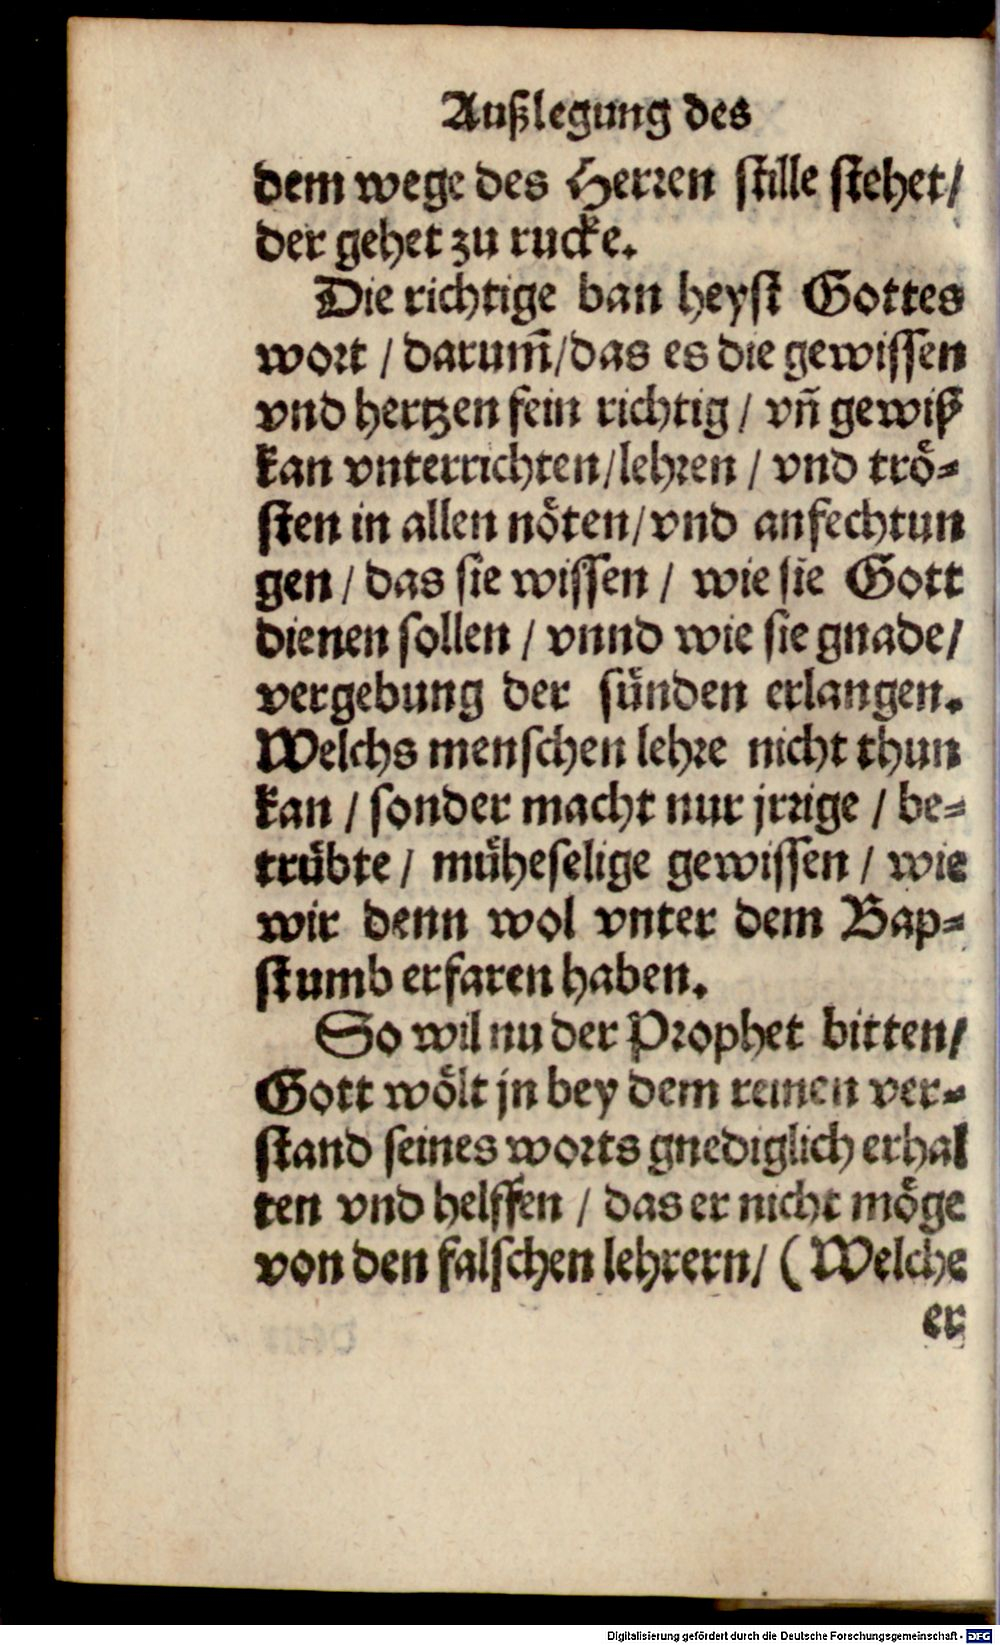 Außlegung des
dem wege des Herren stille stehet/
der gehet zu rucke.
Die richtige ban heyst Gottes
wort / darum̃/das es die gewissen
vnd hertzen fein richtig / vñ gewiß
kan vnterrichten/lehren / vnd trö⸗
sten in allen nöten/vnd anfechtun
gen / das sie wissen / wie sie Gott
dienen sollen / vnnd wie sie gnade/
vergebung der sünden erlangen.
Welchs menschen lehre nicht thun
kan / sonder macht nur jrrige / be⸗
trübte / müheselige gewissen / wie
wir denn wol vnter dem Bap⸗
stumb erfaren haben.
So wil nu der Prophet bitten/
Gott wölt jn bey dem reinen ver⸗
stand seines worts gnediglich erhal
ten vnd helffen / das er nicht möge
von den falschen lehrern/ (Welche
er
Digitalisierung gefördert durch die Deutsche Forschungsgemeinschaft - DFG